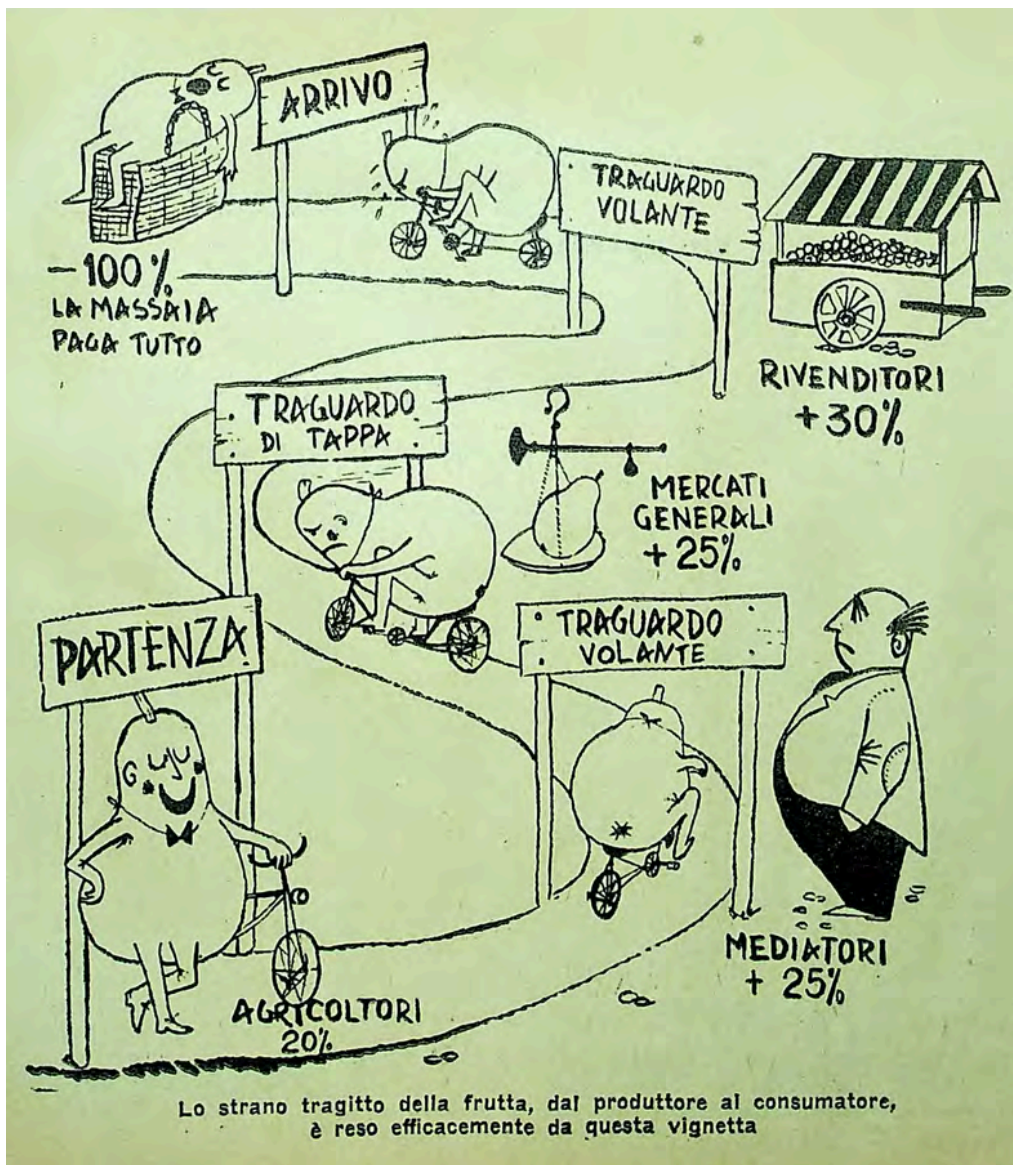 ARRIVO
TRAGUARDO
VOLANTE
- 100%
LA MASSAIA
PAGA TUTTO
RIVENDITORI
+30%
TRAGUARDO
DI TAPPA
MERCATI
GENERALI
+ 25%
PARTENZA
TRAGUARDO
VOLANTE
MEDIATORI
+ 25%
AGRICOLTORI
20%
Lo strano tragitto della frutta, dal produttore al consumatore,
è reso efficacemente da questa vignetta